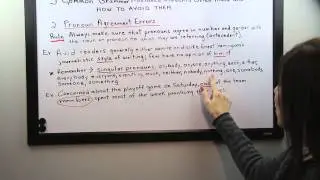 2 Common Grammar
HOW TO AVOID THEM
2) Pronoun Agreement Errors:
Rule Always make sure that pronouns agree in number and
the noun or pronoun to which they are referring (antecedent).
Ex. Avid readers generally either admire and dislike Ernest Hemingway's
journalistic style of writing; few have no opinion of him.
* Remember → singular pronouns: anybody, anyone, anything, each, either,
everybody, everyone, everything, much, neither, nobody, nothing, one, somebody,
someone, something
Ex. Concerned about the playoff game on Saturday, of the team
members spent most of the week practicing